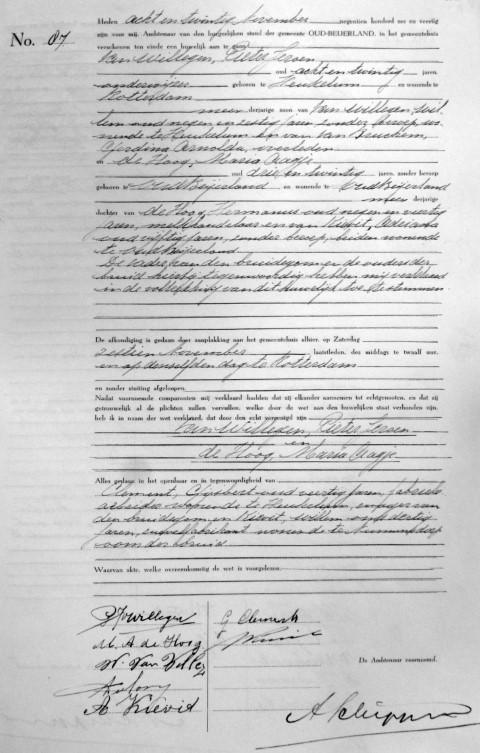 No. 67
Heden acht en twintig November negentien honderd zes en veertig
zijn voor mij, Ambtenaar van den burgerlijken stand der gemeente OUD-BEIJERLAND, in het gemeentehuis
verschenen ten einde een huwelijk aan te gaan:
Van Willegen, Pieter Jeroen,
oud acht en twintig jaren,
onderwijzer geboren te Heukelum en wonende te
Rotterdam
meerderjarige zoon van Van Willegen, Wil-
lem oud negen en zestig jaren, zonder beroep, wo-
nende te Heukelum en van Van Bruchem,
Gerdina Arnolda, overleden
en de Hoog, Maria Aagje
oud drie en twintig jaren, zonder beroep
geboren te Oud-Beijerland en wonende te Oud-Beijerland
meerderjarige
dochter van de Hoog, Hermanus oud negen en veertig
jaren, melkhandelaar en van Kievit, Adriana
oud vijftig jaren, zonder beroep, beiden wonende
te Oud-Beijerland.
De vader van den bruidegom en de ouders der
bruid hierbij tegenwoordig hebben mij verklaard
in de voltrekking van dit huwelijk toe te stemmen.
De afkondiging is gedaan door aanplakking aan het gemeentehuis alhier, op Zaterdag
zestien November laatstleden, des middags te twaalf uur,
en op denzelfden dag te Rotterdam
en zonder stuiting afgeloopen.
Nadat voornoemde comparanten mij verklaard hadden dat zij elkander aannemen tot echtgenooten, en dat zij
getrouwelijk al de plichten zullen vervullen, welke door de wet aan den huwelijken staat verbonden zijn,
heb ik in naam der wet verklaard, dat door den echt vereenigd zijn
Van Willegen, Pieter Jeroen
en
de Hoog, Maria Aagje
Alles gedaan in het openbaar en in tegenwoordigheid van
Clement, Gijsbert oud veertig jaren, fabrieks-
arbeider wonende te Heukelum, zwager van
den bruidegom en Kievit, Willem oud dertig
jaren, wonende te Numansdorp
oom der bruid
Waarvan akte, welke overeenkomstig de wet is voorgelezen.
PJ v Willegen
G Clement
M. A de Hoog
W. Van Willegen
A Kievit
De Ambtenaar voornoemd,